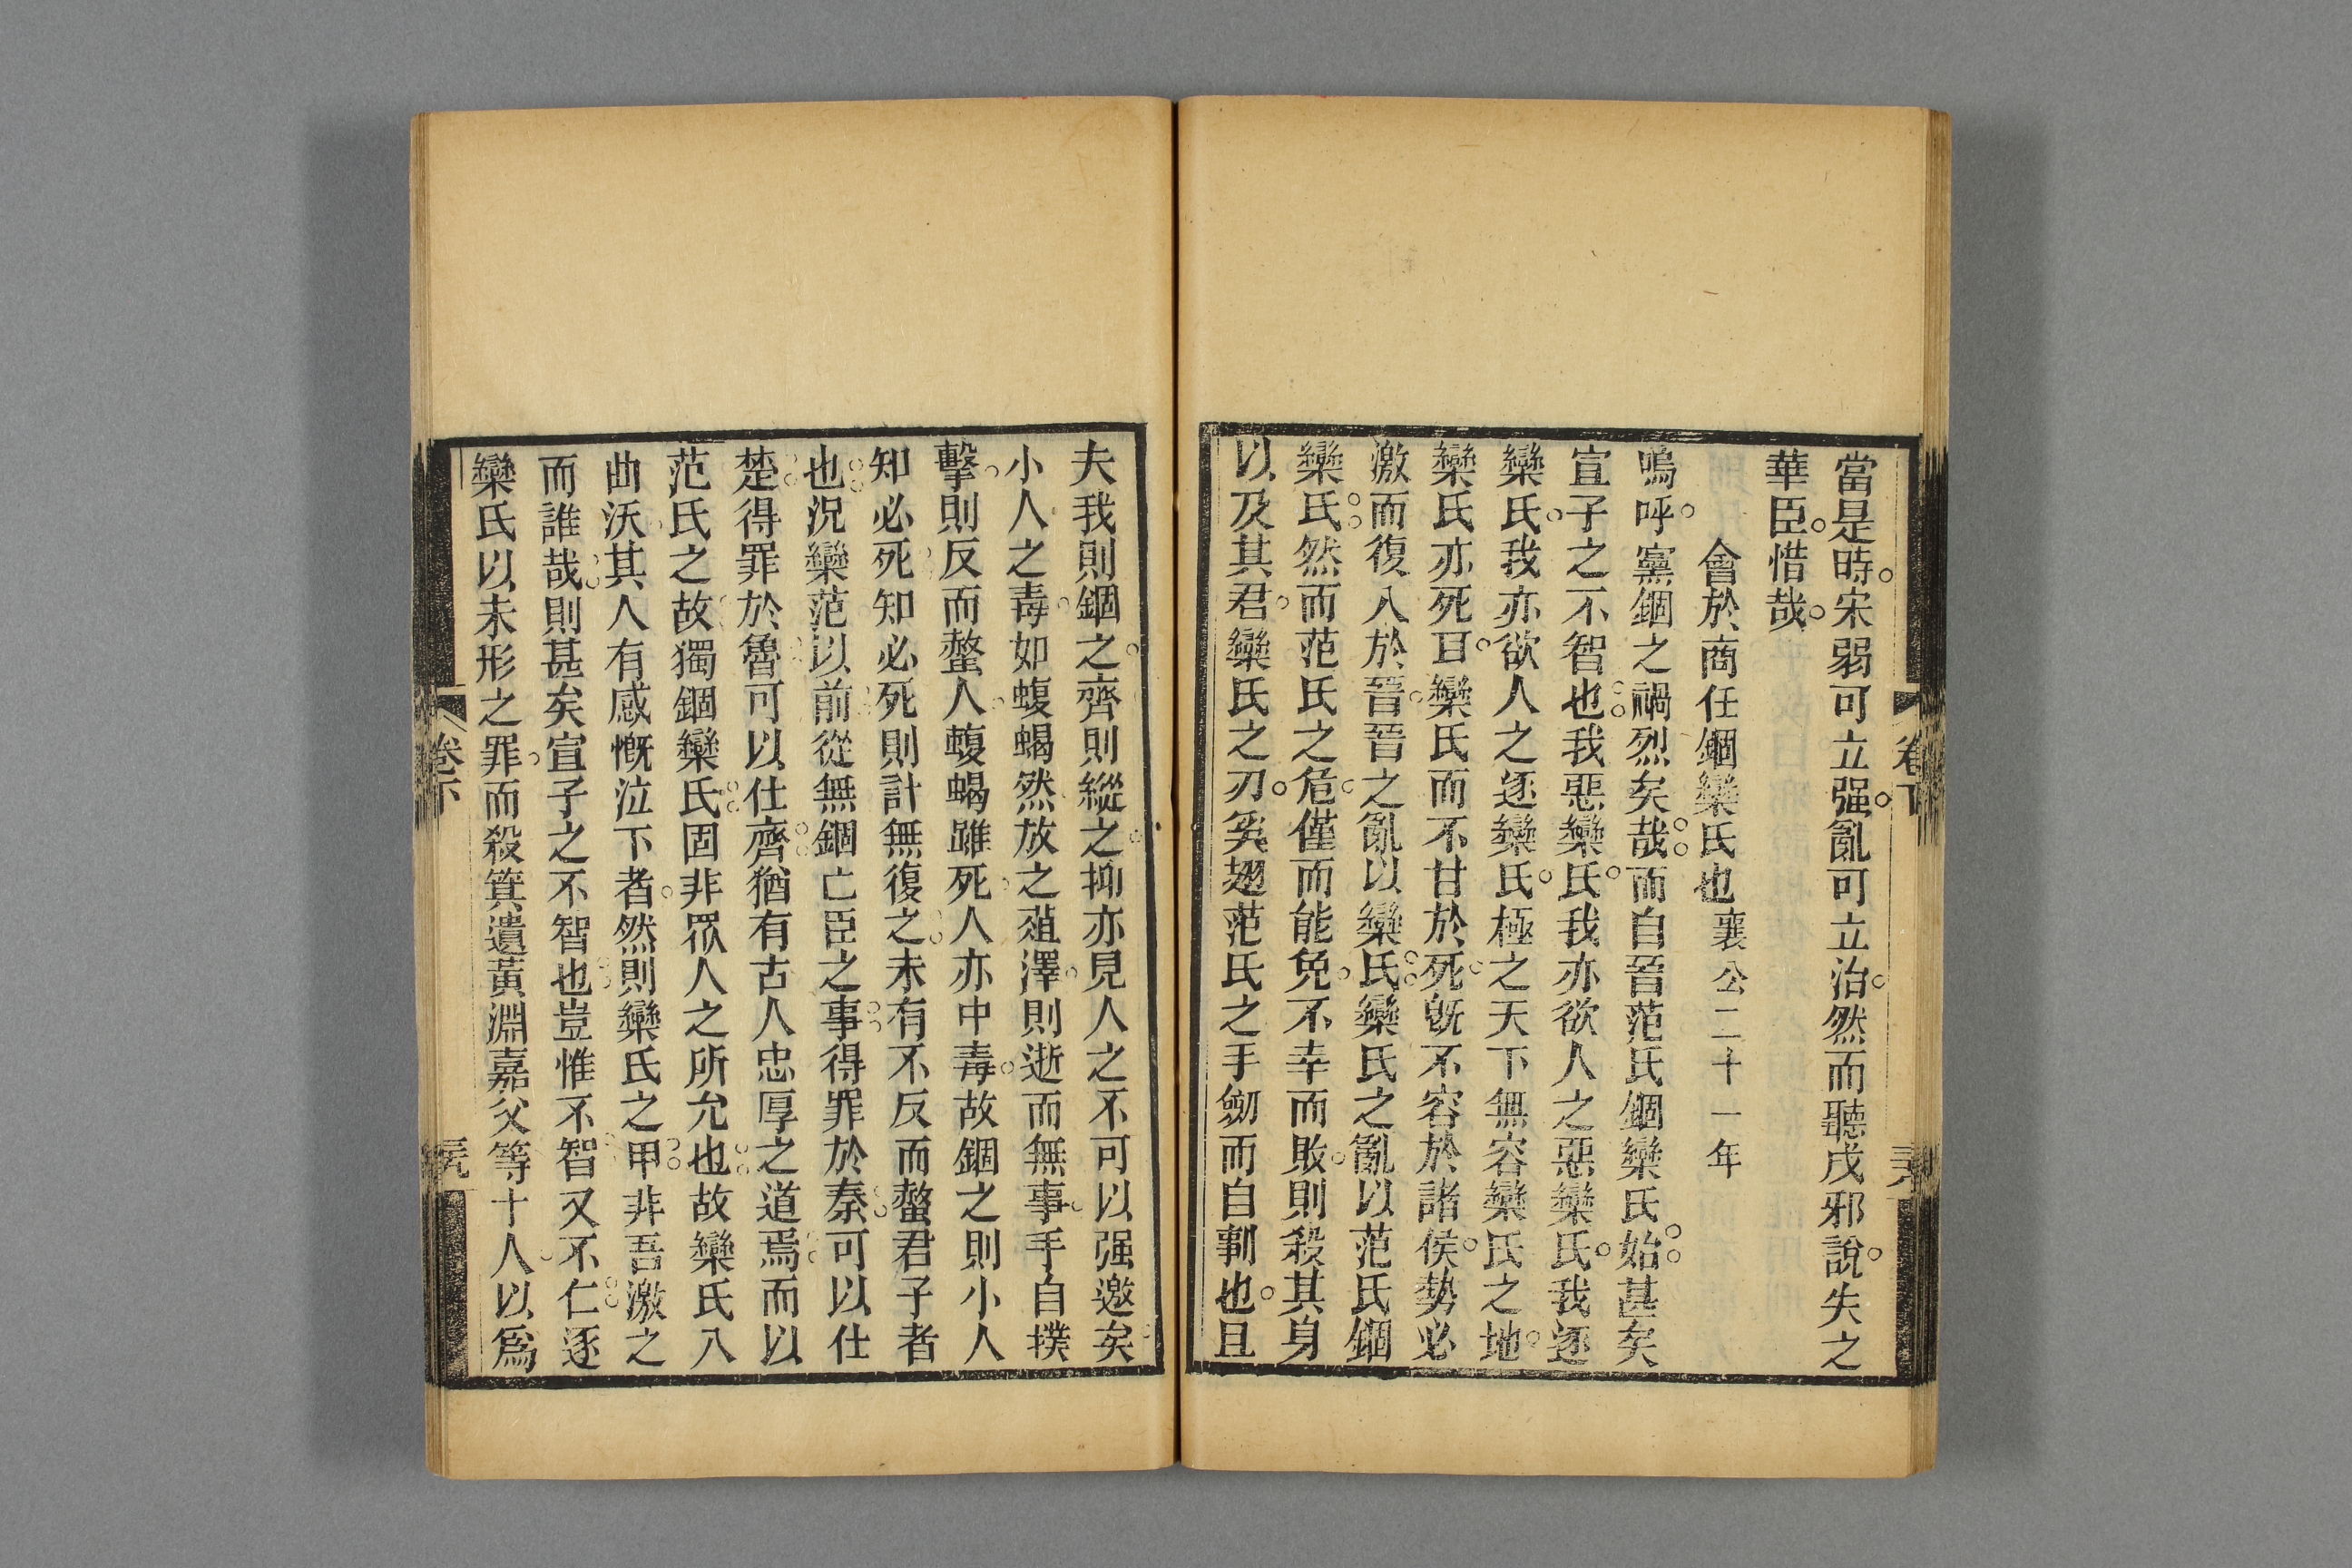 當是時宋弱可立强亂可立治然而聽戌邪說失之
華臣惜哉
會於商任錮欒氏也襄公二十一年
嗚呼黨錮之禍烈矣哉而自晉范氏錮欒氏始甚矣
宣子之不智也我惡欒氏我亦欲人之惡欒氏我逐
欒氏我亦欲人之逐欒氏極之天下無容欒氏之地
欒氏亦死耳欒氏而不甘於死旣不容於諸侯勢必
激而復入於晉晉之亂以欒氏欒氏之亂以范氏錮
欒氏然而范氏之危僅而能免不幸而敗則殺其身
以及其君欒氏之刃奚翅范氏之手劒而自剚也且
夫我則錮之齊則縱之抑亦見人之不可以强邀矣
小人之毒如蝮蝎然放之菹澤則逝而無事手自撲
擊則反而螫人蝮蝎雖死人亦中毒故錮之則小人
知必死知必死則計無復之未有不反而螫君子者
也況欒范以前從無錮亡臣之事得罪於秦可以仕
楚得罪於魯可以仕齊猶有古人忠厚之道焉而以
范氏之故獨錮欒氏固非眾人之所允也故欒氏入
曲沃其人有感慨泣下者然則欒氏之甲非吾激之
而誰哉則甚矣宣子之不智也豈惟不智又不仁逐
欒氏以未形之罪而殺箕遺黃淵嘉父等十人以爲
卷下
卷下